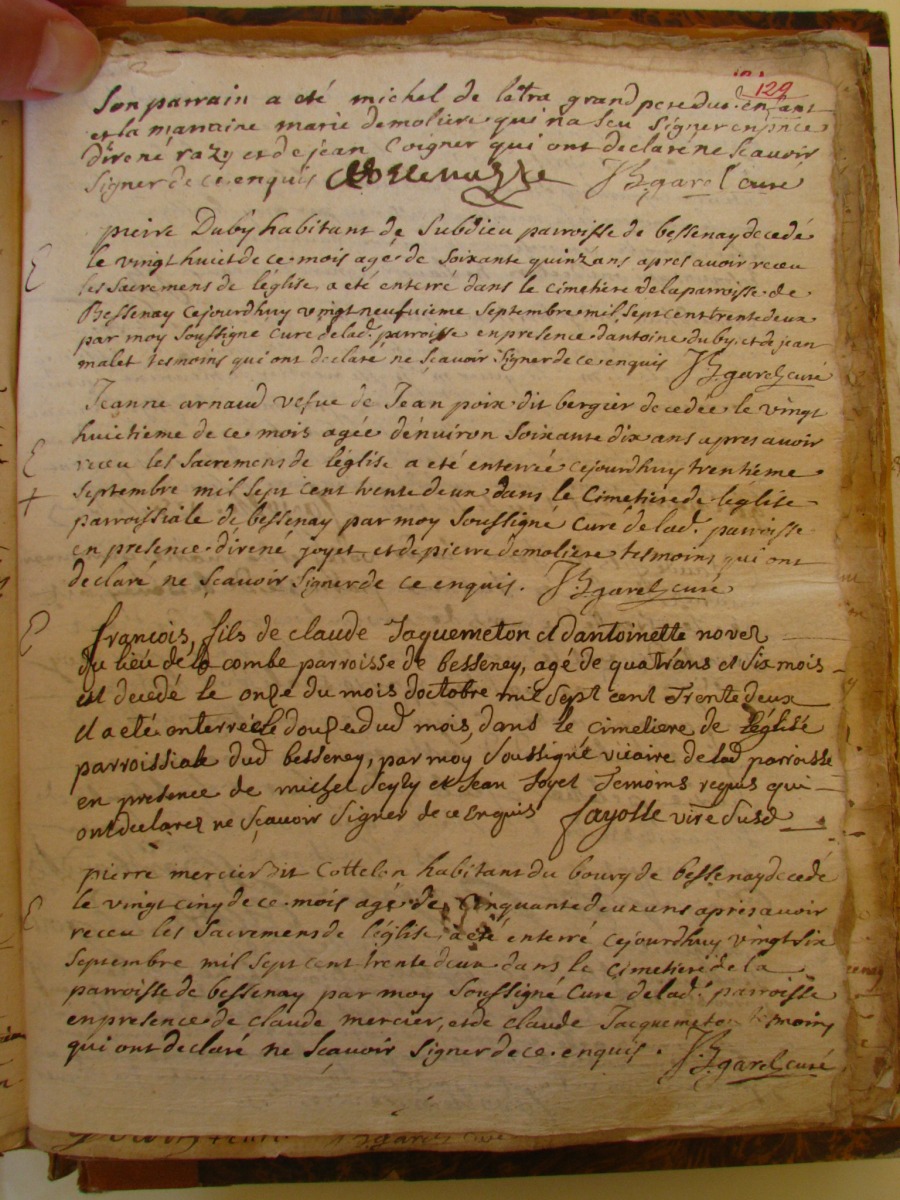 129
son parrain a eté michel de letra grand pere dud. enfant
et la marraine marie demoliere qui na seu signer en pnce
direné razy et de jean Coigner qui ont declaré ne scavoir
signer de ce enquis JB garel curé
pierre Duby habitant de Subdieu parroisse de bessenay decedé
le vingt huict de ce mois agé de soixante quinz ans apres avoir receu
les sacremens de l'église a eté enterré dans le cimetiere de la parroisse de
Bessenay cejourdhuy vingt neufvieme septembre mil sept cent trente deux
par moy soussigné curé de lad. parroisse en presence d'antoine duby et de jean
malet tesmoins qui ont declaré ne scavoir signer de ce enquis JB garel curé
Jeanne arnaud vefue de Jean poix dit bergier decedée le vingt
huictieme de ce mois agée denviron soixante dix ans apres avoir
receu les sacremens de l'église a eté enterrée cejourdhuy trentieme
septembre mil sept cent trente deux dans le cimetiere de l'église
parroissiale de bessenay par moy soussigné curé de lad. parroisse
en presence direné joyet et de pierre demoliere tesmoins qui ont
declaré ne scavoir signer de ce enquis. JB garel curé
françois, fils de claude Jaquemeton et dantoinette novel
du lieu de la combe parroisse de bessenay, agé de quatrans et six mois
est decedé le onze du mois doctobre mil sept cent Trente deux
et a eté enterré le douze dud mois, dans le cimetiere de l'église
parroissiale dud bessenay, par moy soussigné vicaire de lad parroisse
en presence de michel et Jean Joyet Temoins requis qui
ont declarez ne scavoir signer de ce enquis fayolle vire susd
pierre mercier dit Cottelon habitant du bourg de bessenay decedé
le vingt cinq de ce mois agé de cinquante deux ans apres avoir
receu les sacremens de l'église a eté enterré cejourdhuy vingt six
septembre mil sept cent trente deux dans le cimetiere de la
parroisse de bessenay par moy soussigné curé de lad. parroisse
en presence de claude mercier, et de claude Jacquemeton tesmoins
qui ont declaré ne scavoir signer de ce enquis. JB garel curé